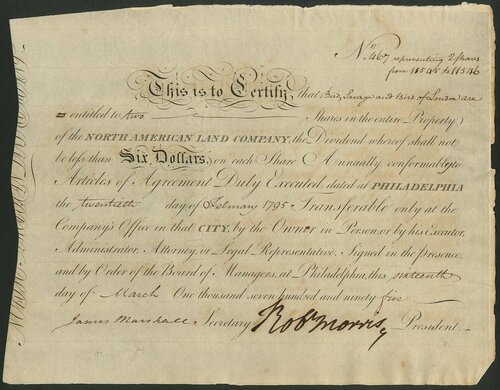 No. 467 representing 2 shares
from 11545 to 11546
This is to Certify, that Bird, Savage and Bird of London are
entitled to two Shares in the entire Property
of the NORTH AMERICAN LAND COMPANY, the Dividend whereof shall not
be less than Six Dollars, on each Share Annually, conformably to
Articles of Agreement Duly Executed, dated at PHILADELPHIA
the twentieth day of February 1795 Transferable only at the
Company's Office in that CITY, by the Owner in Person, or by his Executor,
Administrator, Attorney, or Legal Representative. Signed in the presence,
and by Order of the Board of Managers, at Philadelphia, this sixteenth
day of March One thousand seven hundred and ninety five
James Marshall Secretary Rob Morris President